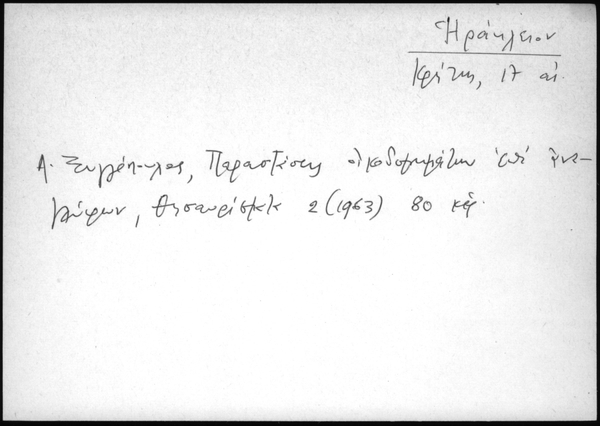 Ἡράκλειον
Κρήτης, 17 αἰ.
Α. Ξυγγόπουλος, Παραστάσεις οἰκοδομημάτων ἐπὶ ἀνα-
γλύφων, Θησαυρίσματα 2 (1963) 80 κἑ.